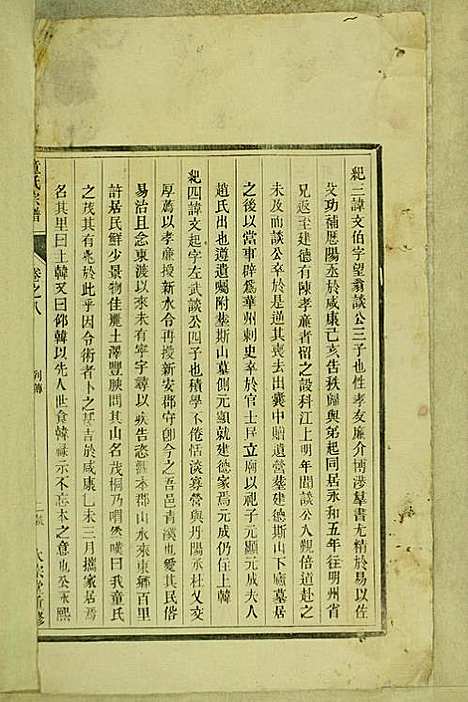 紀三諱文伯字望翁談公三子也性孝友廉介博涉羣書尤精於易以佐
攻功補恩陽丞於咸康己亥告秩歸與弟起同居永和五年往明州省
兄返至建德有陳孝童者留之設科江上明年聞談公入覲倍道赴之
未及而談公卒於是迎其喪去出囊中賻遺營塟建德斯山下廬墓居
之後以當事辟為華州刺史卒於官士民立廟以祀子元顯元成夫人
趙氏出也遵遺囑附塟斯山墓側元顯就建德家焉元成仍住上韓
紀四諱文起字左武談公四子也積學不倦恬淡寡營與丹陽丞杜乂交
厚薦以孝廉授新水令再授新安郡守卽今之吾邑青溪也愛其民俗
易治且念東渡以來未有寧宇尋以疾告恣本郡山水來東鄉百里
許居氏鮮少景物佳麗土澤豐腴問其山名茂桐乃喟然嘆曰我童氏
之茂其有意於此乎因令術者卜之其吉於咸康乙未三月攜家居焉
名其里曰上韓又曰仰韓以先人世食韓祿示不忘本之意也公永熙
童氏宗譜 卷之八 列傳